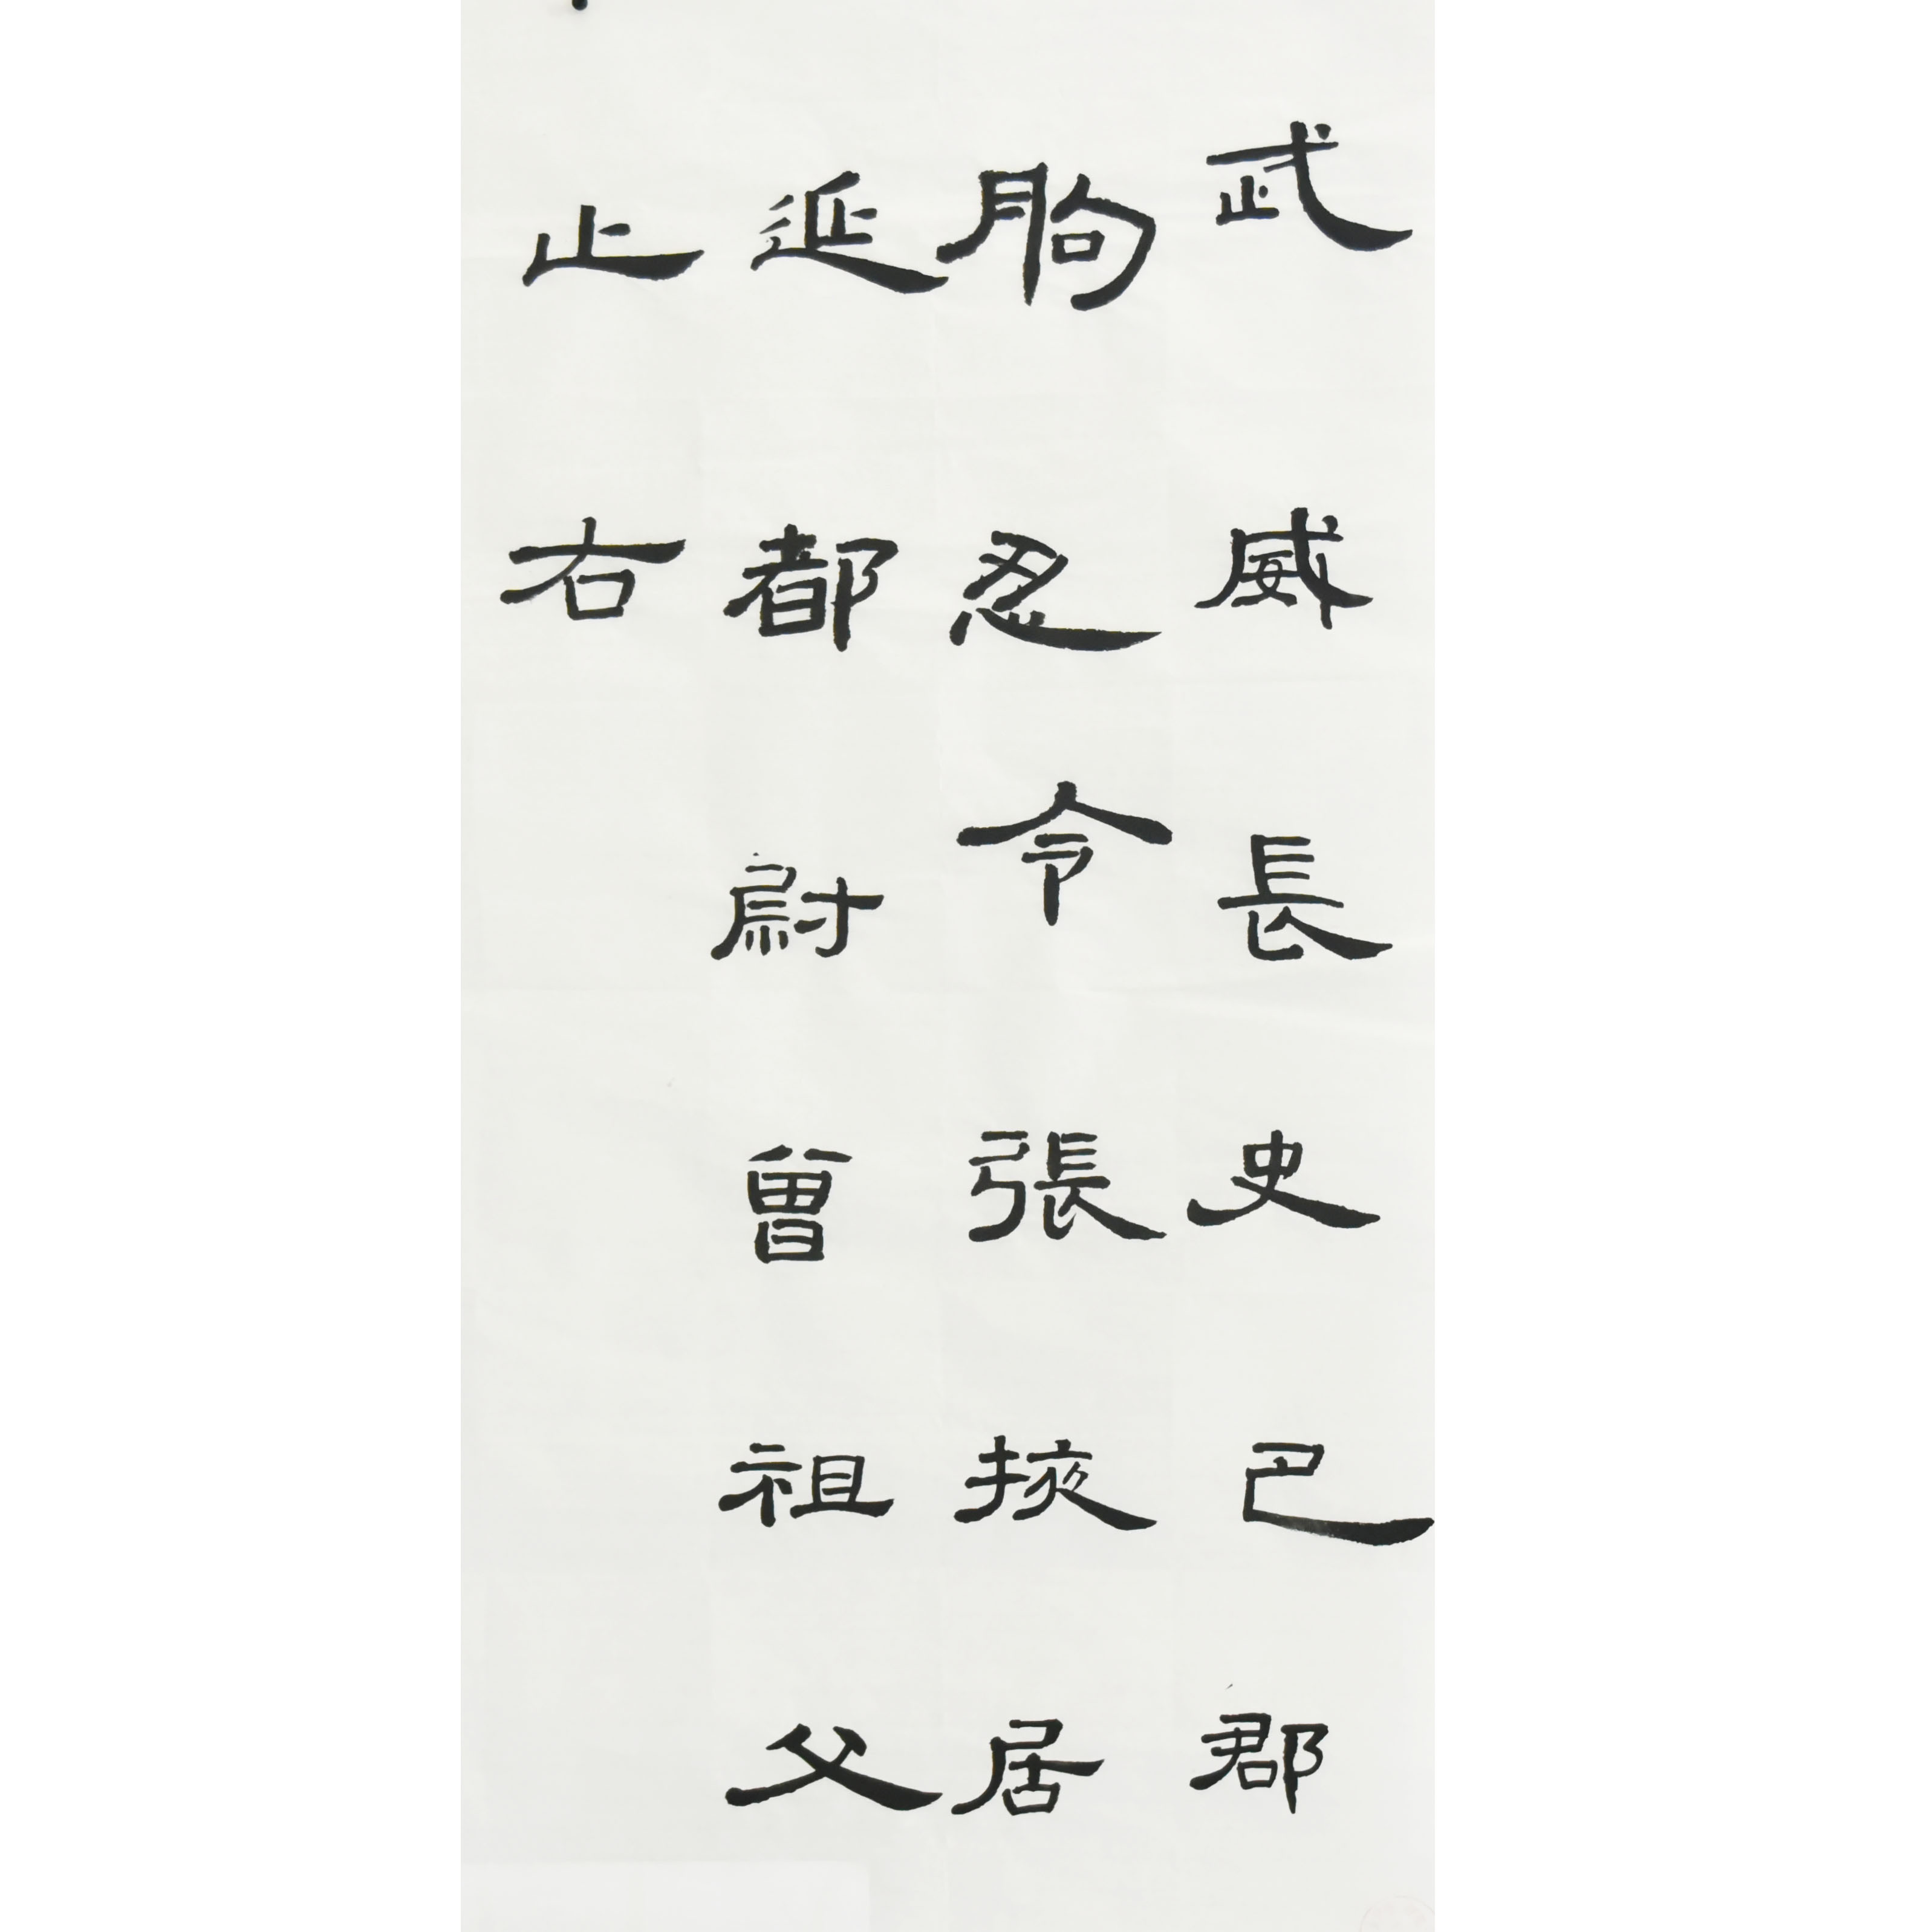 武威長史巴郡
朐忍令張掖居
延都尉曾祖父
止右